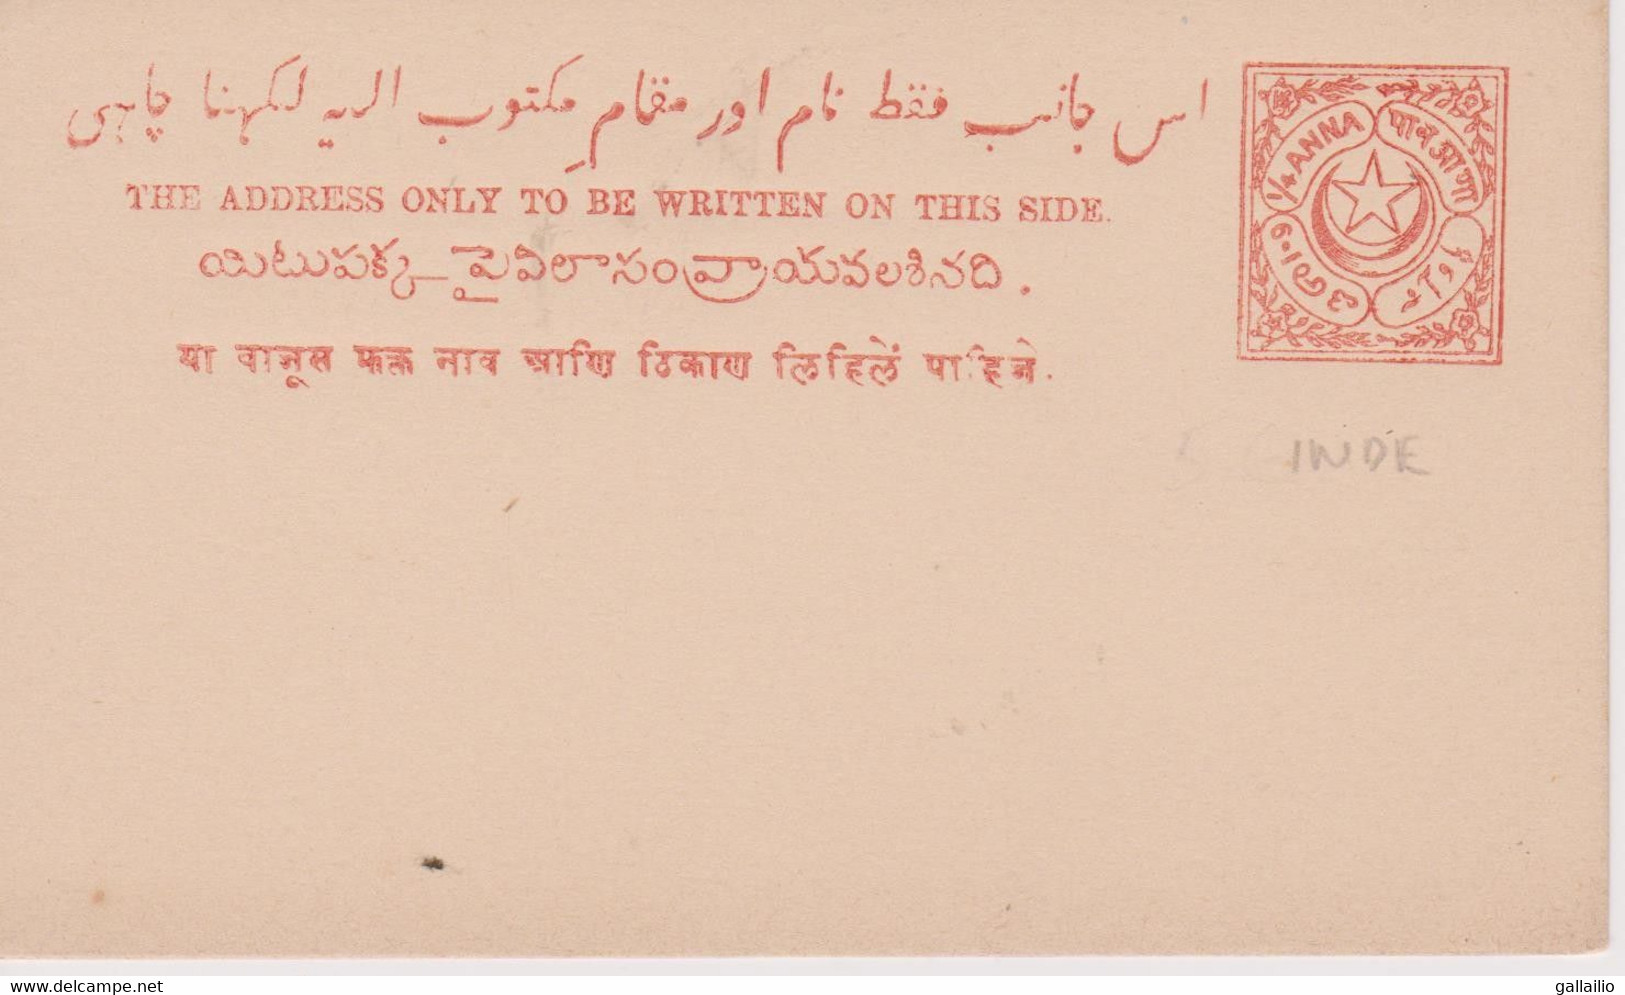 اس جانب فقط نام اور مقامِ مکتوب الیہ لکھنا چاہیے
THE ADDRESS ONLY TO BE WRITTEN ON THIS SIDE.
యిటుపక్క పైవిలాసంవ్రాయవలశినది.
या वाजूस फक्त नाव आणि ठिकाण लिहिलें पाहिजे.
1/4 ANNA
पाव आणा
INDE
www.delcampe.net
gallailio